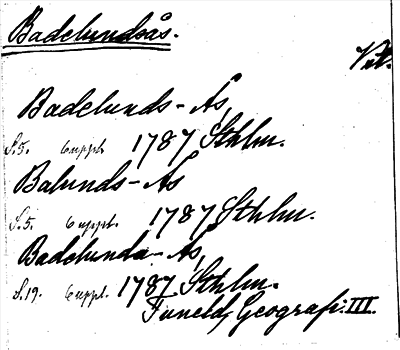 Badelundsås.
Vstl.
Badelunds-Ås,
S.5. 6 uppl. 1787 Sthlm.
Balunds-Ås
S.5. 6 uppl. 1787 Sthlm.
Badelunda-Ås,
S.19. 6 uppl. 1787 Sthlm.
Tuneld, Geografi. III.